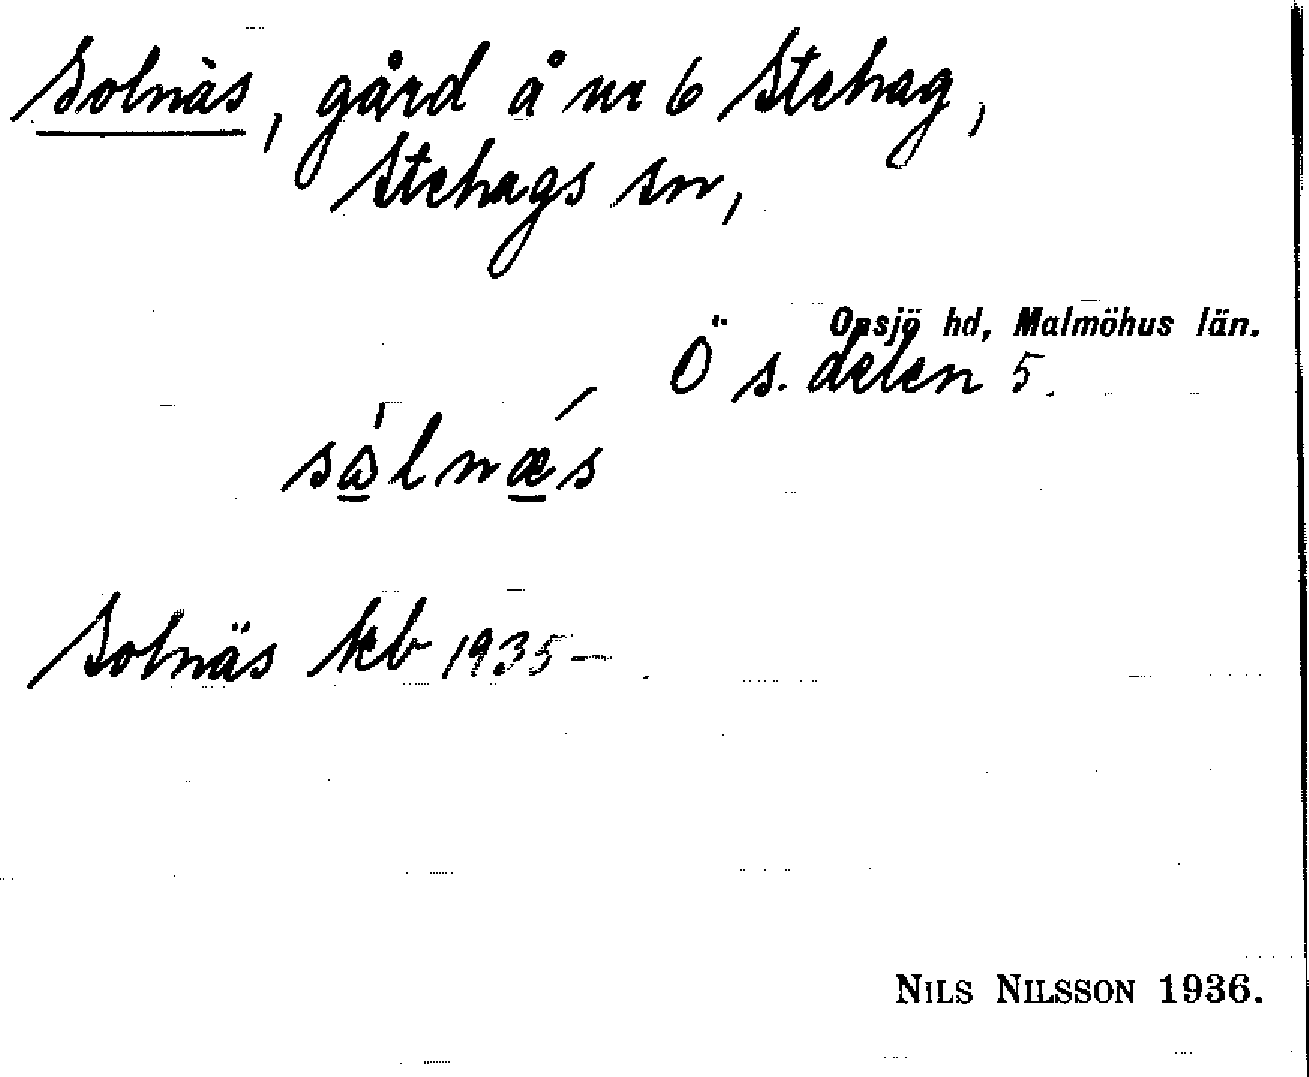 Solnäs, gård å nr 6 Stehag,
Stehags sn,
Onsjö hd, Malmöhus län.
Ö s. delen 5.
Solnäs kb 1935–
NILS NILSSON 1936.